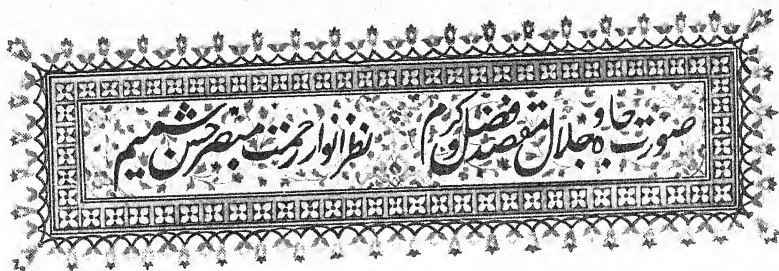 صورت جاه و جلال مقصد فضل و کرم
نظر انوار رحمت مبتصر حسن شمیم